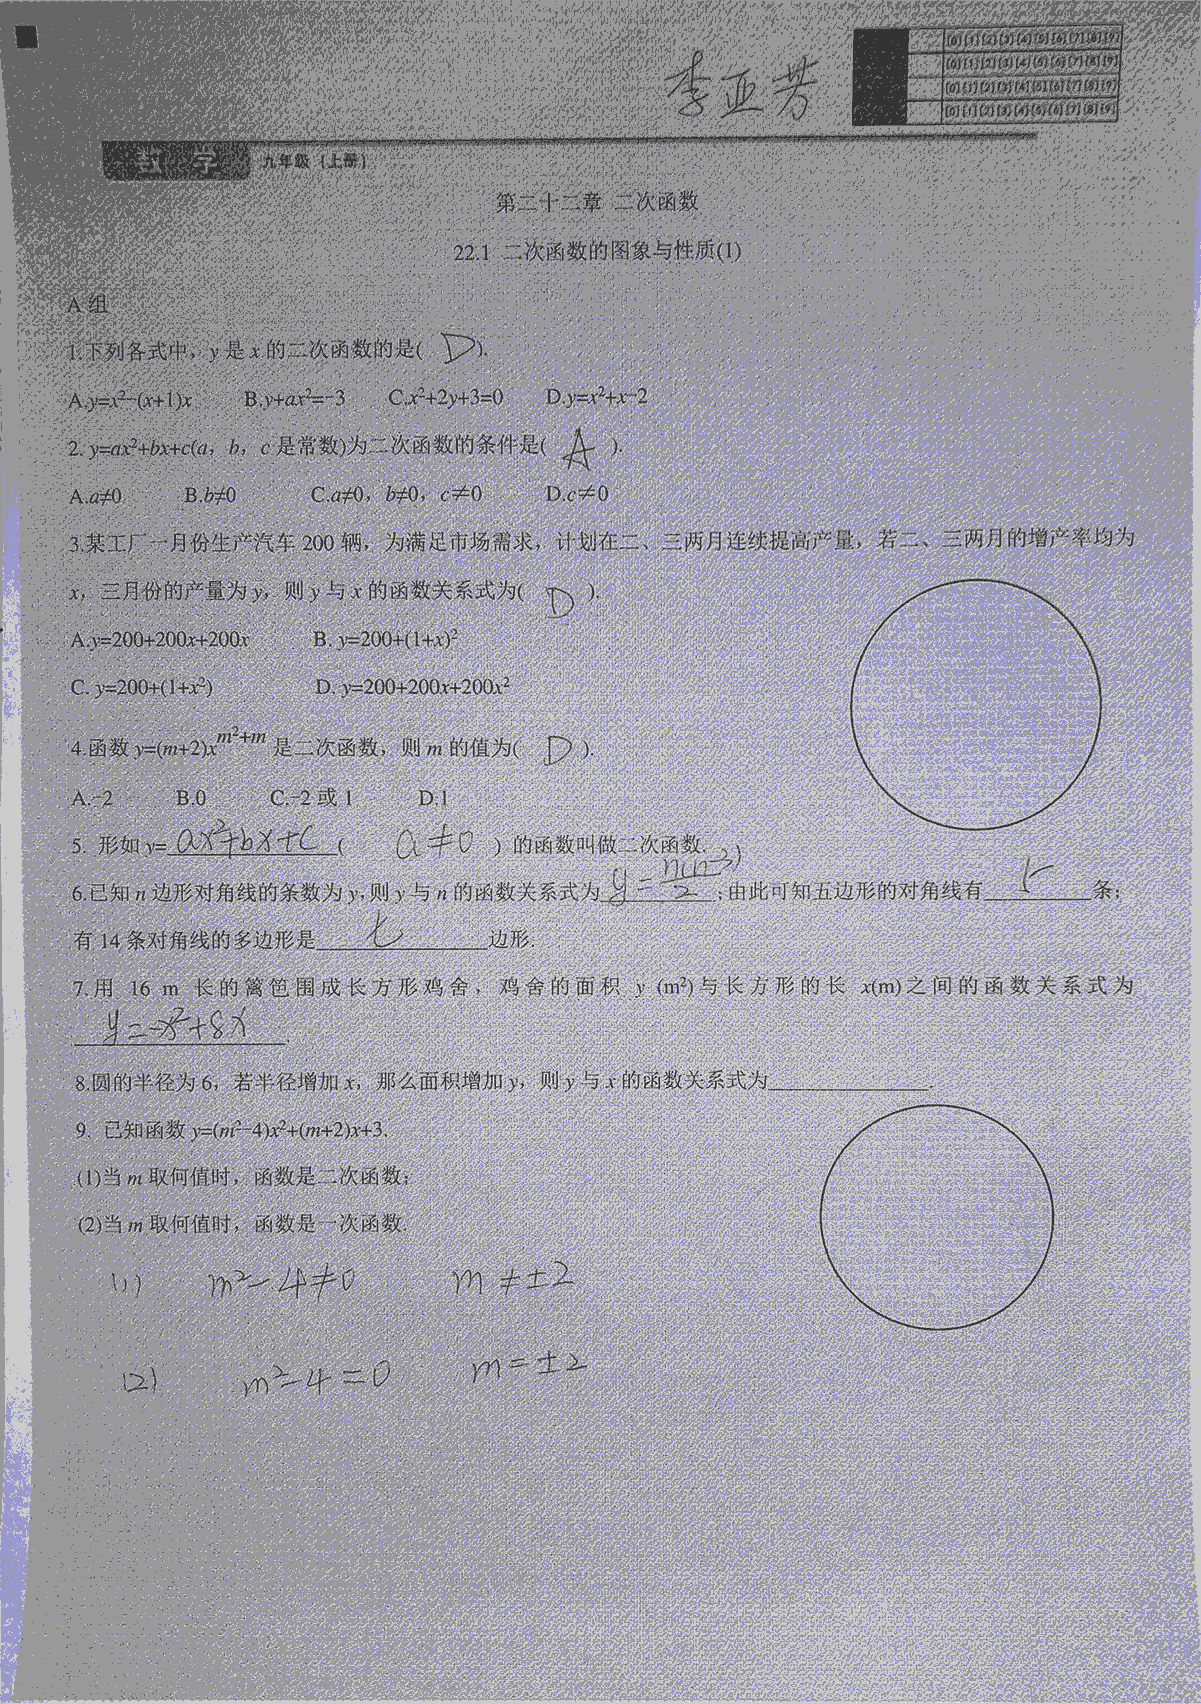 李亚芳
[0][1][2][3][4][5][6][7][8][9]
[0][1][2][3][4][5][6][7][8][9]
[0][1][2][3][4][5][6][7][8][9]
[0][1][2][3][4][5][6][7][8][9]
数 学 九年级（上册）
第二十二章 二次函数
22.1 二次函数的图象与性质(1)
A 组
1.下列各式中，y 是 x 的二次函数的是( D ).
A.y=x²-(x+1)x B.y+ax²=-3 C.x²+2y+3=0 D.y=x²+x-2
2. y=ax²+bx+c(a，b，c 是常数)为二次函数的条件是( A ).
A.a≠0 B.b≠0 C.a≠0，b≠0，c≠0 D.c≠0
3.某工厂一月份生产汽车 200 辆，为满足市场需求，计划在二、三两月连续提高产量，若二、三两月的增产率均为
x，三月份的产量为 y，则 y 与 x 的函数关系式为( D ).
A.y=200+200x+200x B. y=200+(1+x)²
C. y=200+(1+x²) D. y=200+200x+200x²
4.函数 y=(m+2)x^{m²+m} 是二次函数，则 m 的值为( D ).
A.-2 B.0 C.-2 或 1 D.1
5. 形如 y= ax²+bx+c ( a≠0 ) 的函数叫做二次函数.
6.已知 n 边形对角线的条数为 y,则 y 与 n 的函数关系式为 y=n(n-3)/2 ;由此可知五边形的对角线有 条;
有 14 条对角线的多边形是 七 边形.
7.用 16 m 长的篱笆围成长方形鸡舍，鸡舍的面积 y (m²)与长方形的长 x(m)之间的函数关系式为
y=-x²+8x .
8.圆的半径为 6，若半径增加 x，那么面积增加 y，则 y 与 x 的函数关系式为 .
9. 已知函数 y=(m²-4)x²+(m+2)x+3.
(1)当 m 取何值时，函数是二次函数;
(2)当 m 取何值时，函数是一次函数.
(1) m²-4≠0 m≠±2
(2) m²-4=0 m=±2